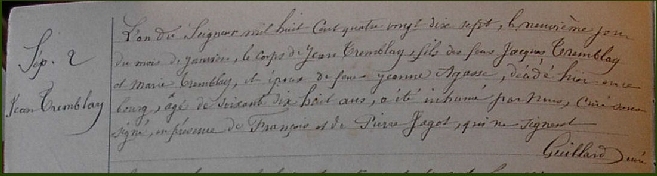 Sép. 2
Jean Tremblay
L'an du Seigneur mil huit cent quatre vingt dix sept, le neuvième jour
du mois de Janvier, le corps de Jean Tremblay, fils des feus Jacques Tremblay
et Marie Tremblay, et époux de feue Jeanne Agasse, décédé hier en ce
bourg, agé de soixante dix huit ans, a été inhumé par Nous, Curé sous
signé, en présence de François et de Pierre Jagot, qui ne signent
Guillard Curé